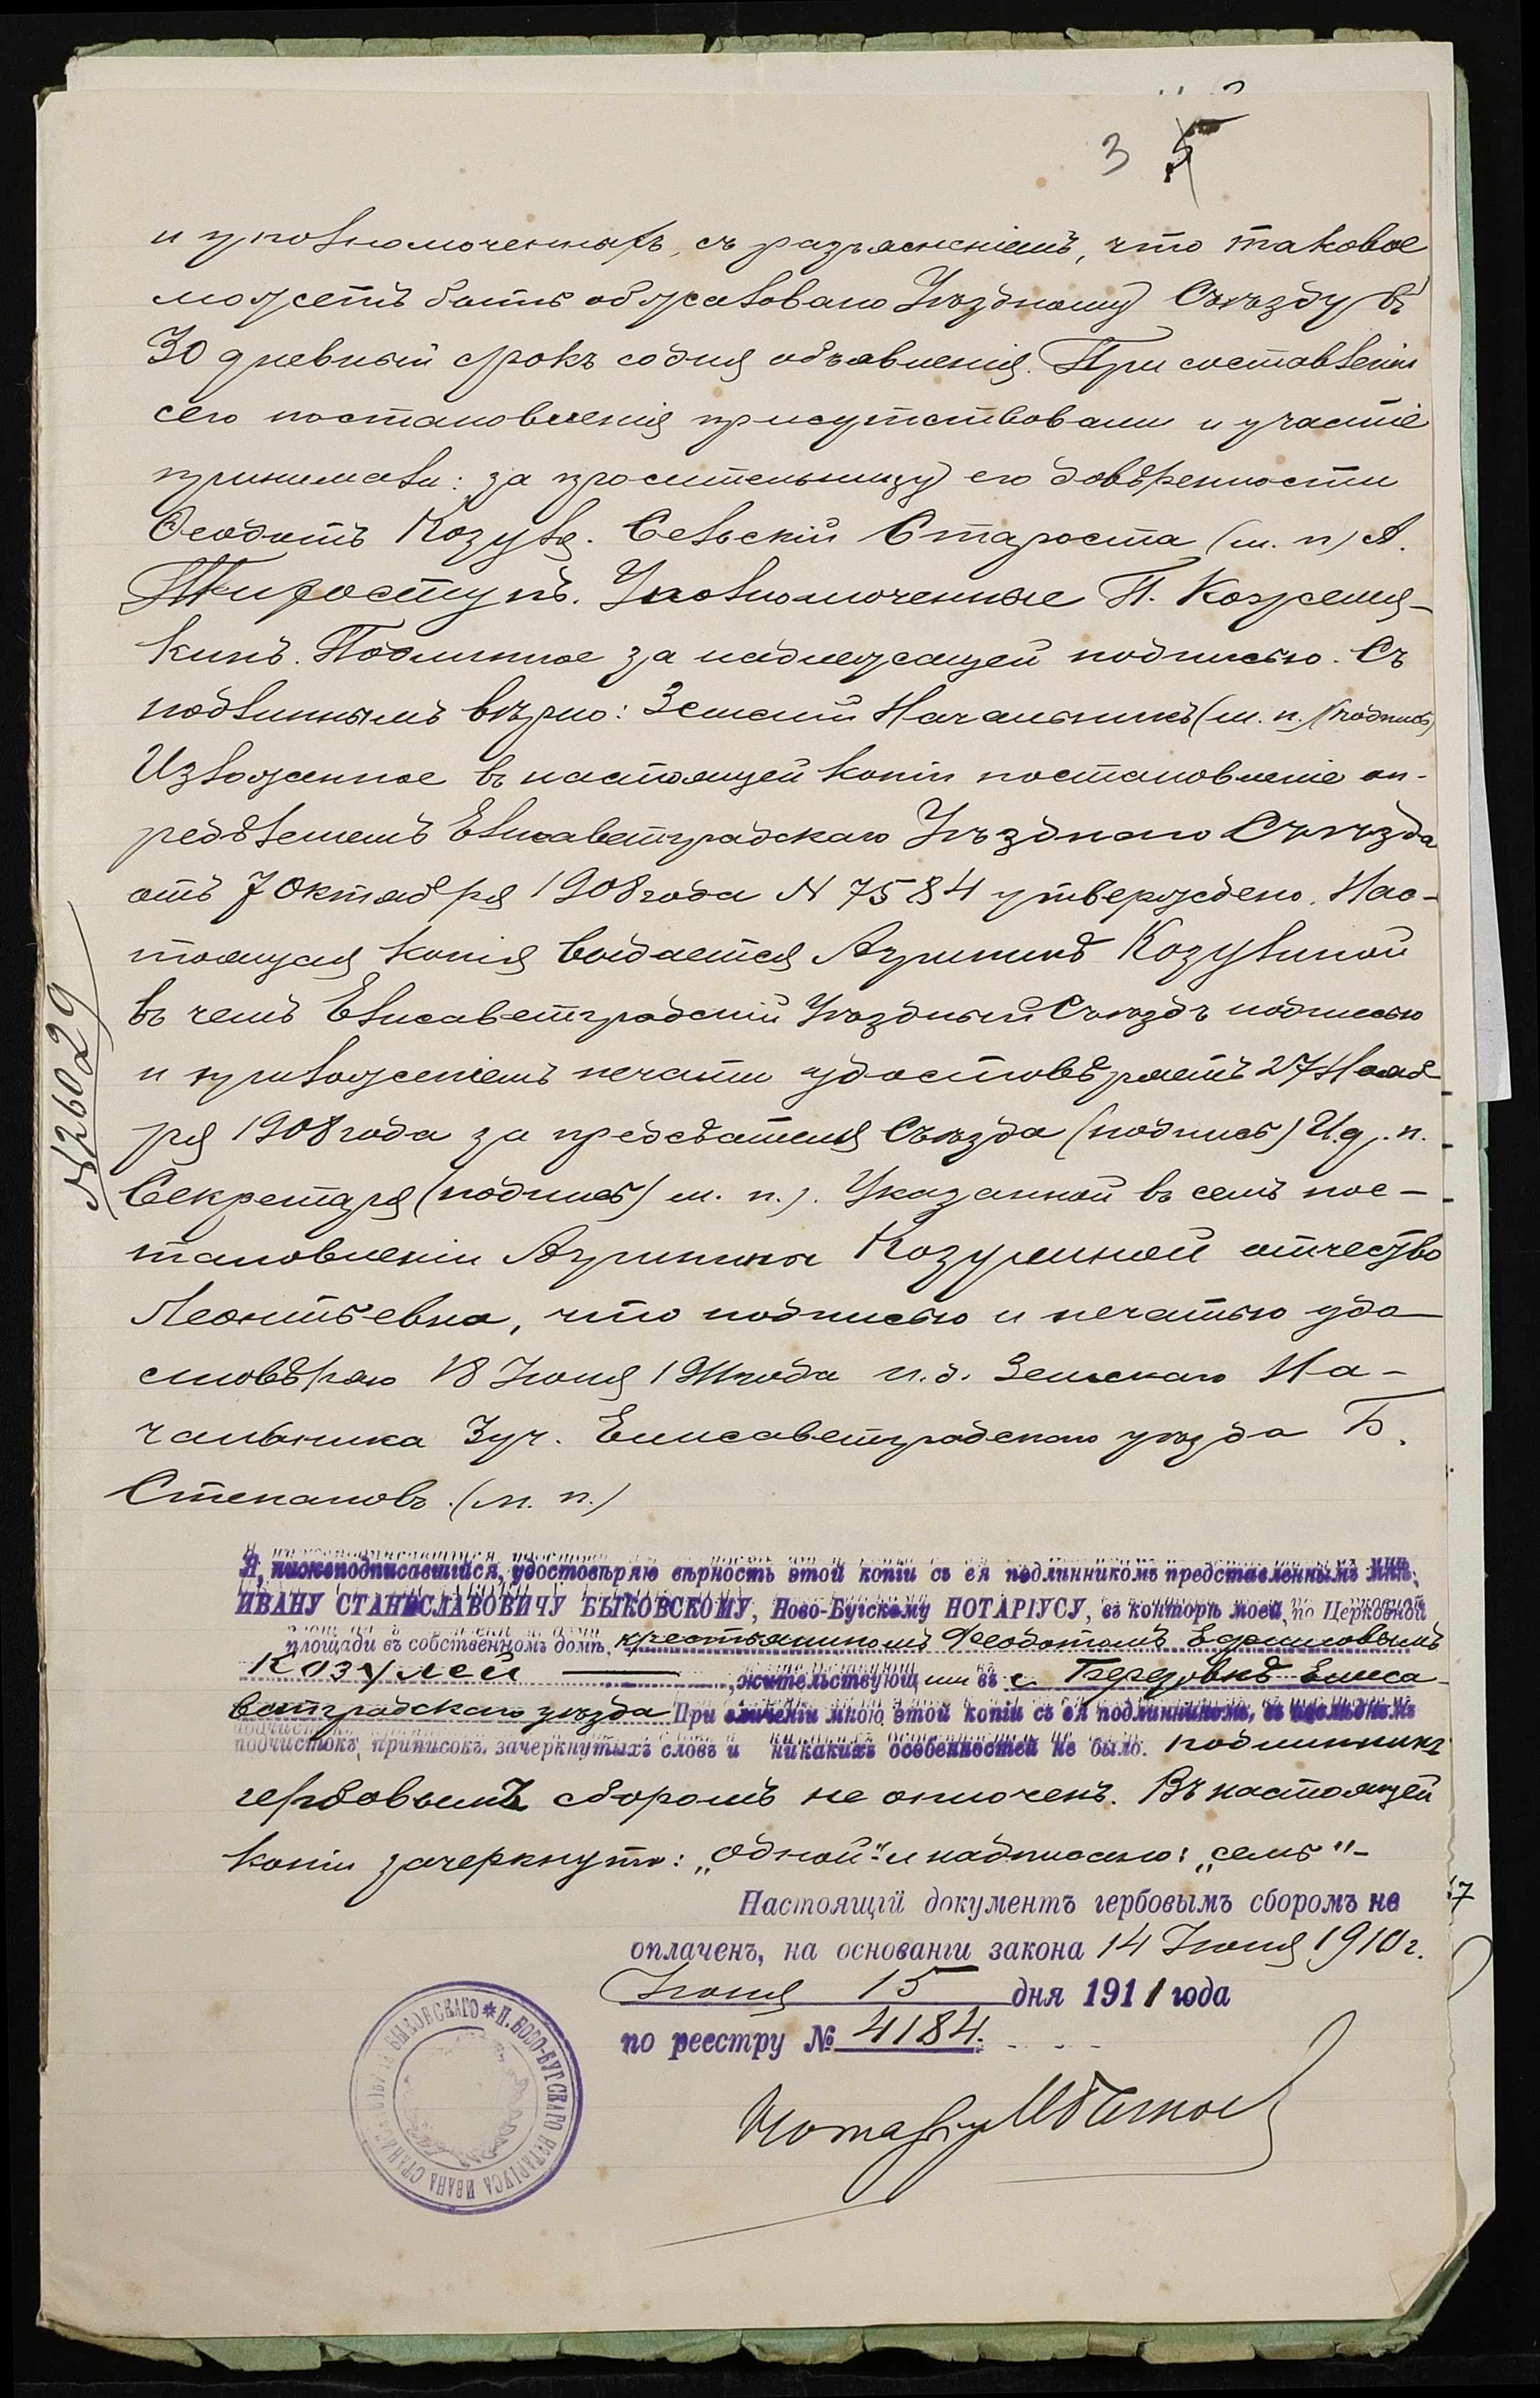 3 5
и уполномоченныхъ, съ разъясненіемъ, что таковое
можетъ быть обжаловано Уѣздному Съѣзду въ
30 дневный срокъ со дня объявленія. При составленіи
сего постановленія присутствовали и участіе
принимали: за просительницу его довѣренности
Ѳеодотъ Козуля. Сельскій Староста (м. п) А.
Уполномоченные П. Кожемя-
кинъ. Подлинное за надлежащей подписью. Съ
подлиннымъ вѣрно: Земскій Начальникъ (м. п.) (подпись)
Изложенное въ настоящей копіи постановленіе оп-
редѣленіемъ Елисаветградскаго Уѣзднаго Съѣзда
отъ 7 Октября 1908 года N 7584 утверждено. Нас-
тоящая копія выдается Агрипинѣ Козулиной
въ чемъ Елисаветградскій Уѣздный Съѣздъ подписью
и приложеніемъ печати удостовѣряетъ 27 Нояб
ря 1908 года за предсѣдателя Съѣзда (подпись) И.д. п.
Секретаря (подпись) м. п.). Указанной въ семъ пос-
тановленіи Агрипины Козулиной отчество
Леонтьевна, что подписью и печатью удо
стовѣряю 18 Іюня 1911 года и.д. Земскаго На-
чальника 3 уч. Елисаветградскаго уѣзда Б.
Степановъ. (м. п.)
№26029
Я, нижеподписавшійся, удостовѣряю вѣрность этой копіи съ ея подлинникомъ представленнымъ мнѣ,
ИВАНУ СТАНИСЛАВОВИЧУ БЫКОВСКОМУ, Ново-Бугскому НОТАРІУСУ, въ конторѣ моей, по Церковной
площади въ собственномъ домѣ, крестьяниномъ Ѳеодотомъ Ефимовымъ
Козулей, жительствующимъ въ с.
Елиса
ветградскаго уѣзда При сличеніи мною этой копіи съ ея подлинникомъ, въ послѣднемъ
подчистокъ, приписокъ, зачеркнутыхъ словъ и никакихъ особенностей не было. Подлинникъ
гербовымъ сборомъ не оплоченъ. Въ настоящей
копіи зачеркнуто: „одной" и надписано: „семь"-
Настоящій документъ гербовымъ сборомъ не
оплаченъ, на основаніи закона 14 Іюня 1910 г.
Іюня 15 дня 1911 года
по реестру № 4184.
Нотаріусъ
* П. НОВО-БУГСКАГО НОТАРІУСА ИВАНА СТАНИСЛАВОВИЧА БЫКОВСКАГО